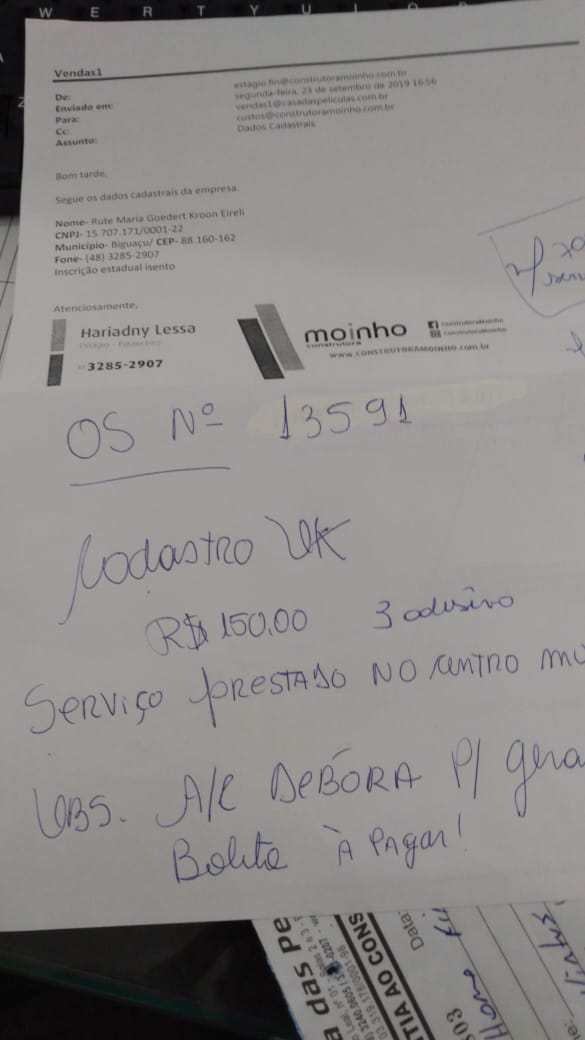 W E R T Y U
Vendas1
De: estagio.fin@construtoramoinho.com.br
Enviado em: segunda-feira, 23 de setembro de 2019 16:56
Para: vendas1@casadaspeliculas.com.br
Cc: custos@construtoramoinho.com.br
Assunto: Dados Cadastrais
Bom tarde,
Segue os dados cadastrais da empresa.
Nome- Rute Maria Goedert Kroon Eireli
CNPJ- 15.707.171/0001-22
Município- Biguaçu/ CEP- 88.160-162
Fone- (48) 3285-2907
Inscrição estadual isento
Atenciosamente,
Hariadny Lessa
Estágio - Financeiro
3285-2907
moinho
construtora
ConstrutoraMoinho
ConstrutoraMoinho
www.CONSTRUTORAMOINHO.com.br
OS Nº 13591
Cadastro
R$ 150,00 3 adesivo
Serviço prestado no centro
OBS. A/C DEBÓRA P/ gera
Boleto À Pagar!
a das Pe
TIA AO CONS
Data: